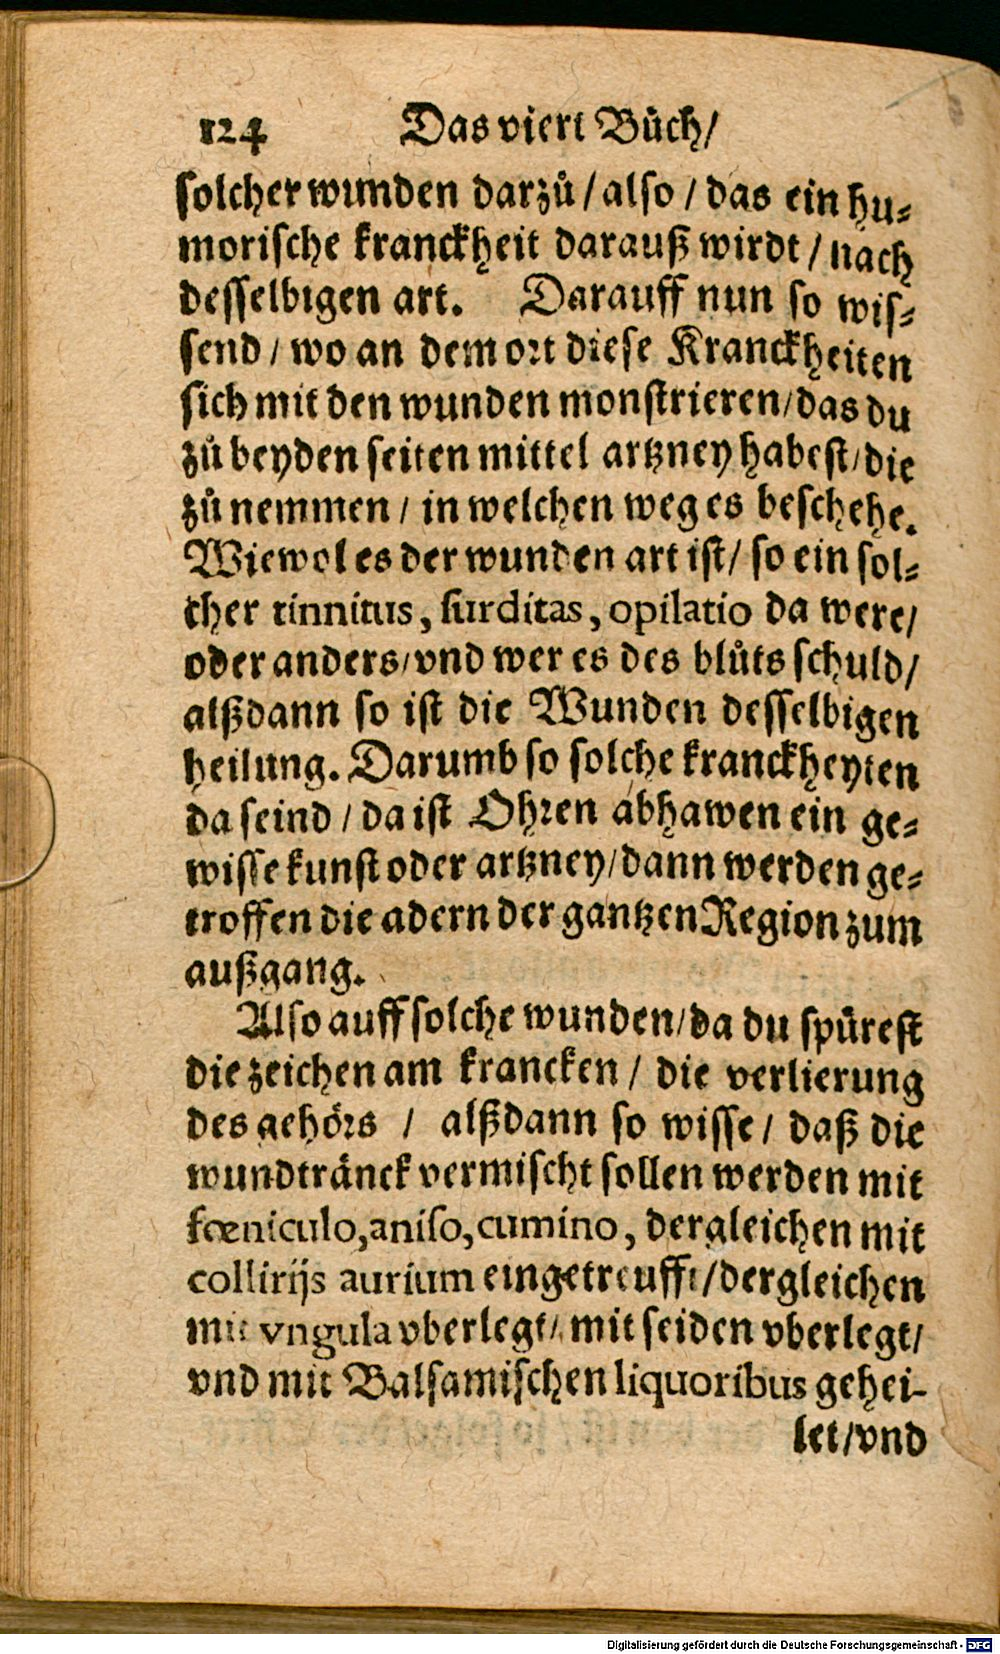 124 Das viert Bůch/
solcher wunden darzů / also / das ein hu⸗
morische kranckheit darauß wirdt / nach
desselbigen art. Darauff nun so wis⸗
send / wo an dem ort diese Kranckheiten
sich mit den wunden monstrieren/das du
zů beyden seiten mittel artzney habest/die
zů nemmen / in welchen weg es beschehe.
Wiewol es der wunden art ist/ so ein sol⸗
cher tinnitus, surditas, opilatio da were/
oder anders/vnd wer es des blůts schuld/
alßdann so ist die Wunden desselbigen
heilung. Darumb so solche kranckheyten
da seind / da ist Ohren abhawen ein ge⸗
wisse kunst oder artzney/dann werden ge⸗
troffen die adern der gantzen Region zum
außgang.
Also auff solche wunden/da du spürest
die zeichen am krancken / die verlierung
des gehörs / alßdann so wisse / daß die
wundtränck vermischt sollen werden mit
fœniculo, aniso, cumino, dergleichen mit
collirijs aurium eingetreufft/dergleichen
mit vngula vberlegt/ mit seiden vberlegt/
vnd mit Balsamischen liquoribus gehei-
let/vnd
Digitalisierung gefördert durch die Deutsche Forschungsgemeinschaft - DFG